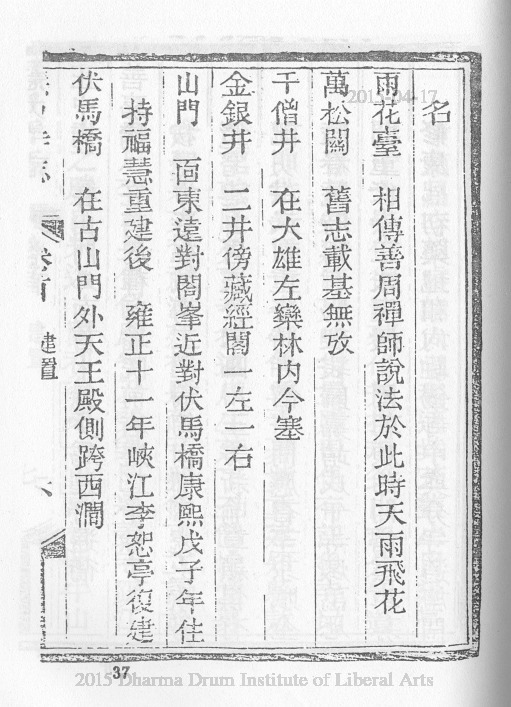 名
雨花臺 相傳善周禪師說法於此時天雨飛花
萬松關 舊志載基無攷
千僧井 在大雄左欒林内今塞
金銀井 二井傍藏經閣一左一右
山門 面東遠對閣峯近對伏馬橋康熙戊子年住
持福慧重建後 雍正十一年峽江李恕亭復建
伏馬橋 在古山門外天王殿側跨西澗
寺志 卷首 建置
37
2015-04-17
2015 Dharma Drum Institute of Liberal Arts